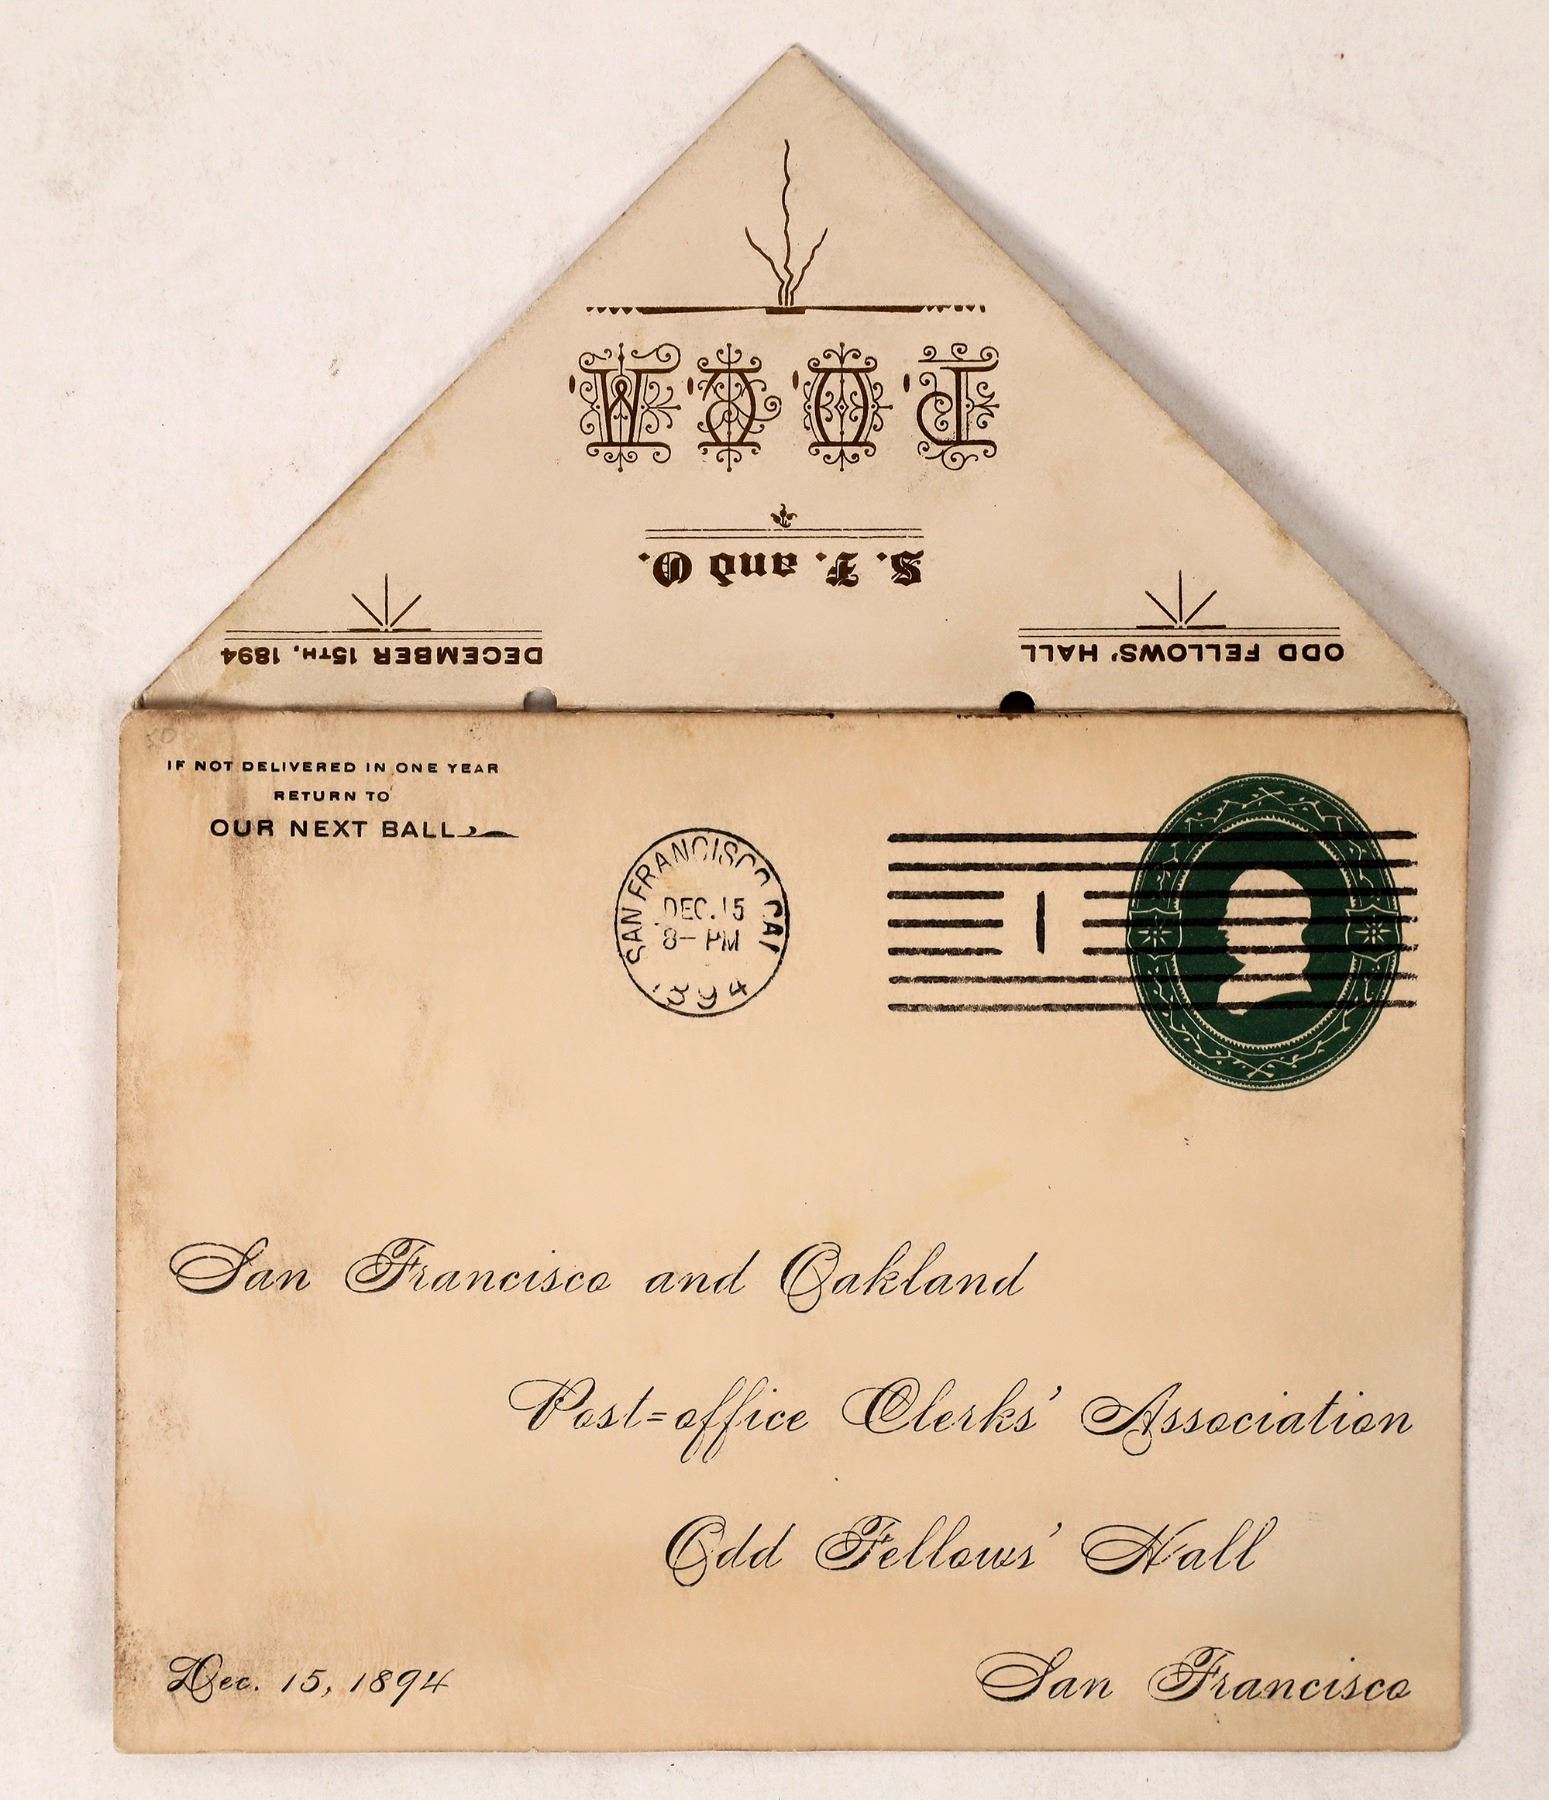 ODD FELLOWS' HALL
DECEMBER 15TH, 1894
S. F. and O.
P. O. C. A.
IF NOT DELIVERED IN ONE YEAR
RETURN TO
OUR NEXT BALL
SAN FRANCISCO CAL
DEC. 15
8- PM
1894
1
San Francisco and Oakland
Post=office Clerks' Association
Odd Fellows' Hall
Dec. 15, 1894
San Francisco